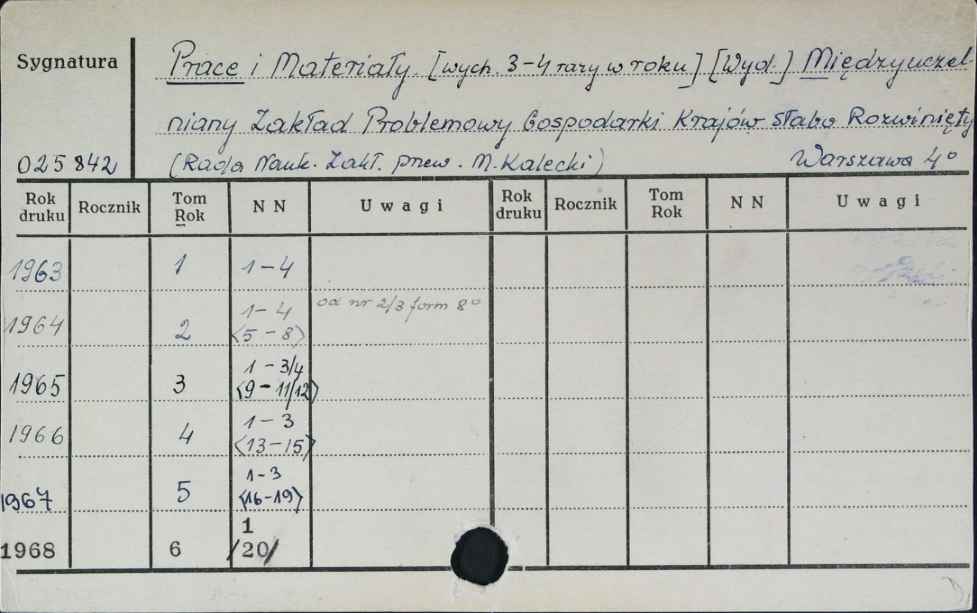 Sygnatura
Prace i Materiały. [wych. 3-4 razy w roku] [Wyd.] Międzyuczel-
niany Zakład Problemowy Gospodarki Krajów słabo Rozwinięty
025842 (Rada Nauk. Zakł. przew. M. Kalecki) Warszawa 4°
Rok druku Rocznik Tom Rok N N Uwagi Rok druku Rocznik Tom Rok N N Uwagi
1963 1 1-4
1964 2 1-4 od nr 2/3 form 8°
<5-8>
1965 3 1-3/4
<9-11/12>
1966 4 1-3
<13-15>
1967 5 1-3
<16-19>
1
1968 6 /20/